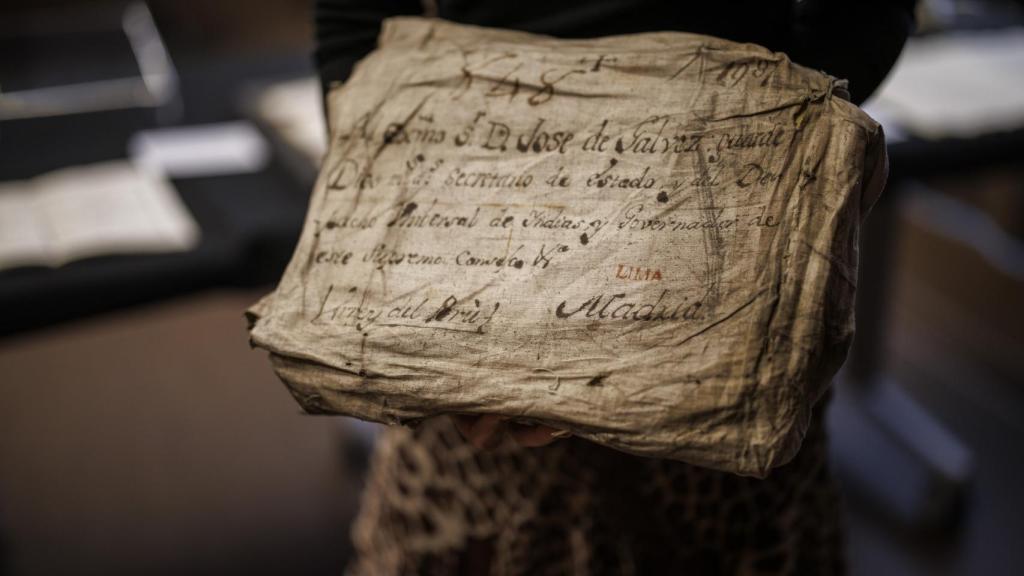 Al Exmo Sr. D. Jose de Galvez guarde
Dios ms. as. Secretario de Estado y del Des
pacho Universal de Indias, y Governador de
este Supremo Consejo Va.
LIMA
Virrey del Perú Madrid.